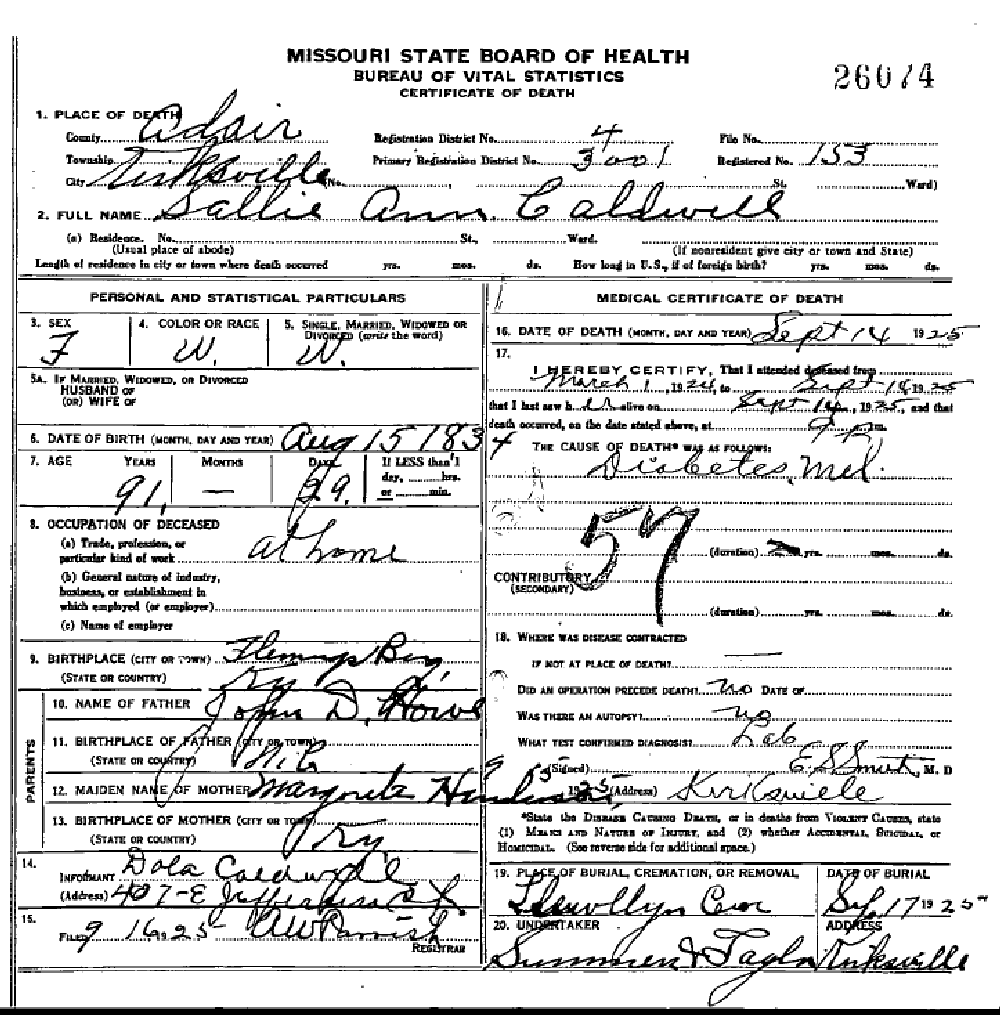 MISSOURI STATE BOARD OF HEALTH
BUREAU OF VITAL STATISTICS
CERTIFICATE OF DEATH
26074
1. PLACE OF DEATH
County Adair Registration District No. 4 File No.
Township Primary Registration District No. 3001 Registered No. 153
City Kirksville No. St. Ward)
2. FULL NAME Sallie Ann Caldwell
(a) Residence. No. St., Ward.
(Usual place of abode) (If nonresident give city or town and State)
Length of residence in city or town where death occurred yrs. mos. ds. How long in U.S., if of foreign birth? yrs. mos. ds.
PERSONAL AND STATISTICAL PARTICULARS
3. SEX 4. COLOR OR RACE 5. SINGLE, MARRIED, WIDOWED OR DIVORCED (write the word)
F W. W.
5A. IF MARRIED, WIDOWED, OR DIVORCED
HUSBAND OF
(OR) WIFE OF
6. DATE OF BIRTH (MONTH, DAY AND YEAR) Aug 15 183
7. AGE YEARS MONTHS DAYS If LESS than 1
day, hrs.
or min.
91, — 29.
8. OCCUPATION OF DECEASED
(a) Trade, profession, or
particular kind of work at home
(b) General nature of industry,
business, or establishment in
which employed (or employer)
(c) Name of employer
9. BIRTHPLACE (CITY OR TOWN)
(STATE OR COUNTRY) Ky
PARENTS
10. NAME OF FATHER John D. Howe
11. BIRTHPLACE OF FATHER (CITY OR TOWN)
(STATE OR COUNTRY)
12. MAIDEN NAME OF MOTHER
13. BIRTHPLACE OF MOTHER (CITY OR TOWN)
(STATE OR COUNTRY) Ky
14.
INFORMANT Dola Caldwell
(Address) 407-E Jefferson St
15.
FILED 9 16, 25 REGISTRAR
MEDICAL CERTIFICATE OF DEATH
16. DATE OF DEATH (MONTH, DAY AND YEAR) Sept 14 1925
17.
I HEREBY CERTIFY, That I attended deceased from
March 1, 1924, to Sept 14, 1925
that I last saw her alive on Sept 14, 1925, and that
death occurred, on the date stated above, at 9 P m.
4 THE CAUSE OF DEATH* WAS AS FOLLOWS:
Diabetes, Mel.
57
(duration) 2 yrs. mos. ds.
CONTRIBUTORY
(SECONDARY)
(duration) yrs. mos. ds.
18. WHERE WAS DISEASE CONTRACTED
IF NOT AT PLACE OF DEATH? —
DID AN OPERATION PRECEDE DEATH? no DATE OF
WAS THERE AN AUTOPSY? no
WHAT TEST CONFIRMED DIAGNOSIS? Lab
(Signed) E S Smith, M. D
1925 (Address) Kirksville
*State the DISEASE CAUSING DEATH, or in deaths from VIOLENT CAUSES, state
(1) MEANS AND NATURE OF INJURY, and (2) whether ACCIDENTAL, SUICIDAL, or
HOMICIDAL. (See reverse side for additional space.)
19. PLACE OF BURIAL, CREMATION, OR REMOVAL DATE OF BURIAL
Llewellyn Cem Sep. 17 1925
20. UNDERTAKER ADDRESS
Summers & Taylor Kirksville